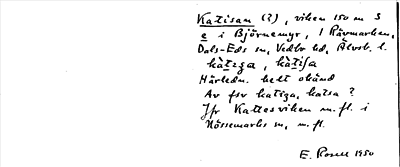 Katisan (?), viken 150 m S
e i Björnemyr, 1 Rävmarken,
Dals-Eds sn, Vedbo hd, Älvsb. l.
katiza, katisa
Härledn. helt okänd
Av fsv katiza, katsa ?
Jfr Kattesviken m.fl. i
Nössemarks sn, m.fl.
E. Rosell 1950